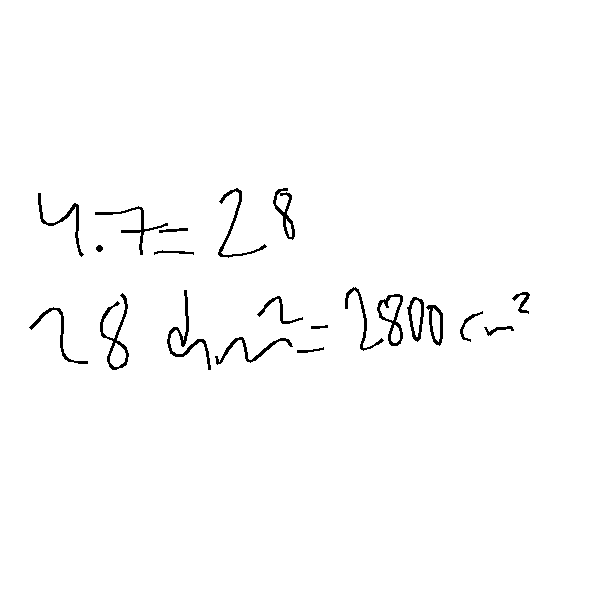 4.7=28
28 dm²=2800 cm²